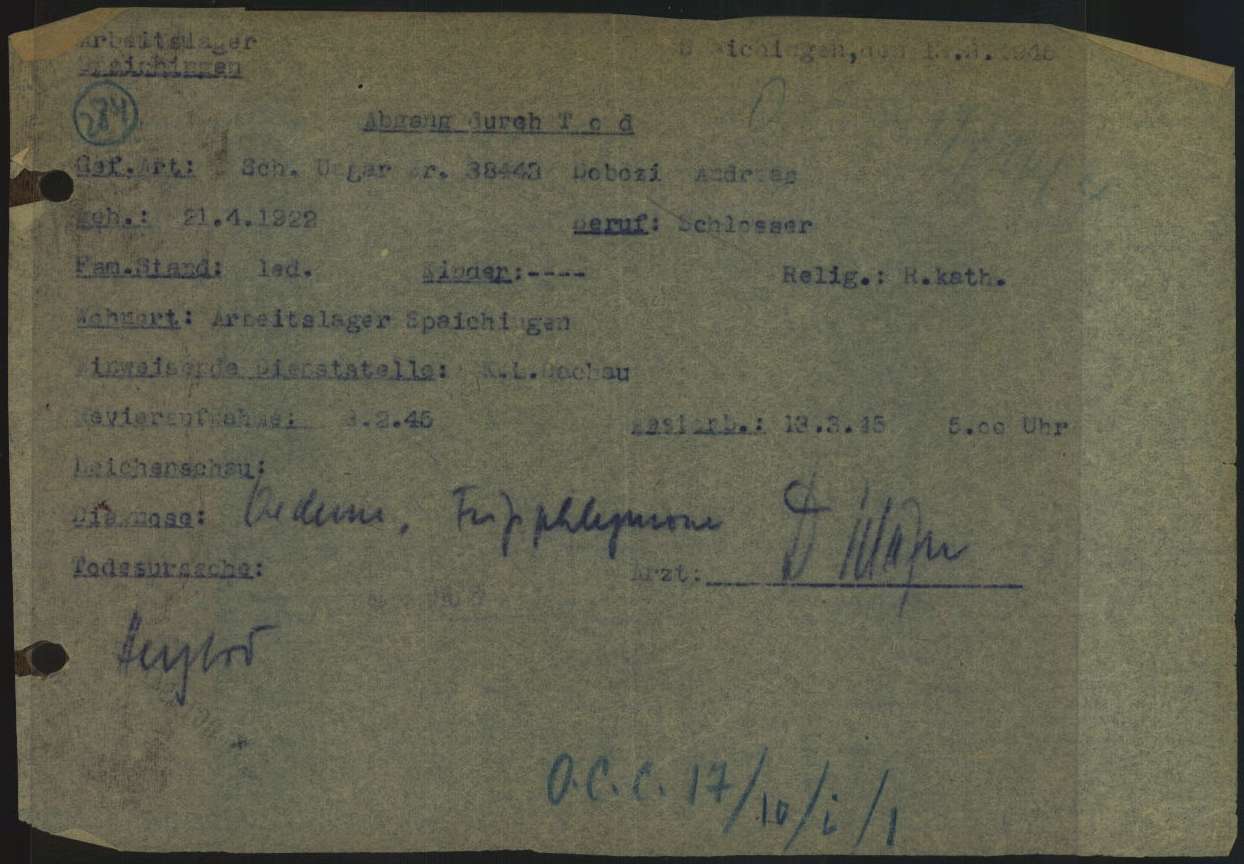 Arbeitslager
Spaichingen
Spaichingen, den 13.3.1945
284
Abgang durch T o d
Gef.Art: Sch. Ungar Nr. 38443 Dobozi Andreas
geb.: 21.4.1922 Beruf: Schlosser
Fam.Stand: led. Kinder:---- Relig.: R.kath.
Wohnort: Arbeitslager Spaichingen
Einweisende Dienststelle: K.L.Dachau
Revieraufnahme: .2.45 gestorb.: 13.3.45 5.oo Uhr
Leichenschau:
Diagnose: Oedeme, phlegmone
Todesursache: Arzt:
Herztod
O.C.C. 17/10/i/1